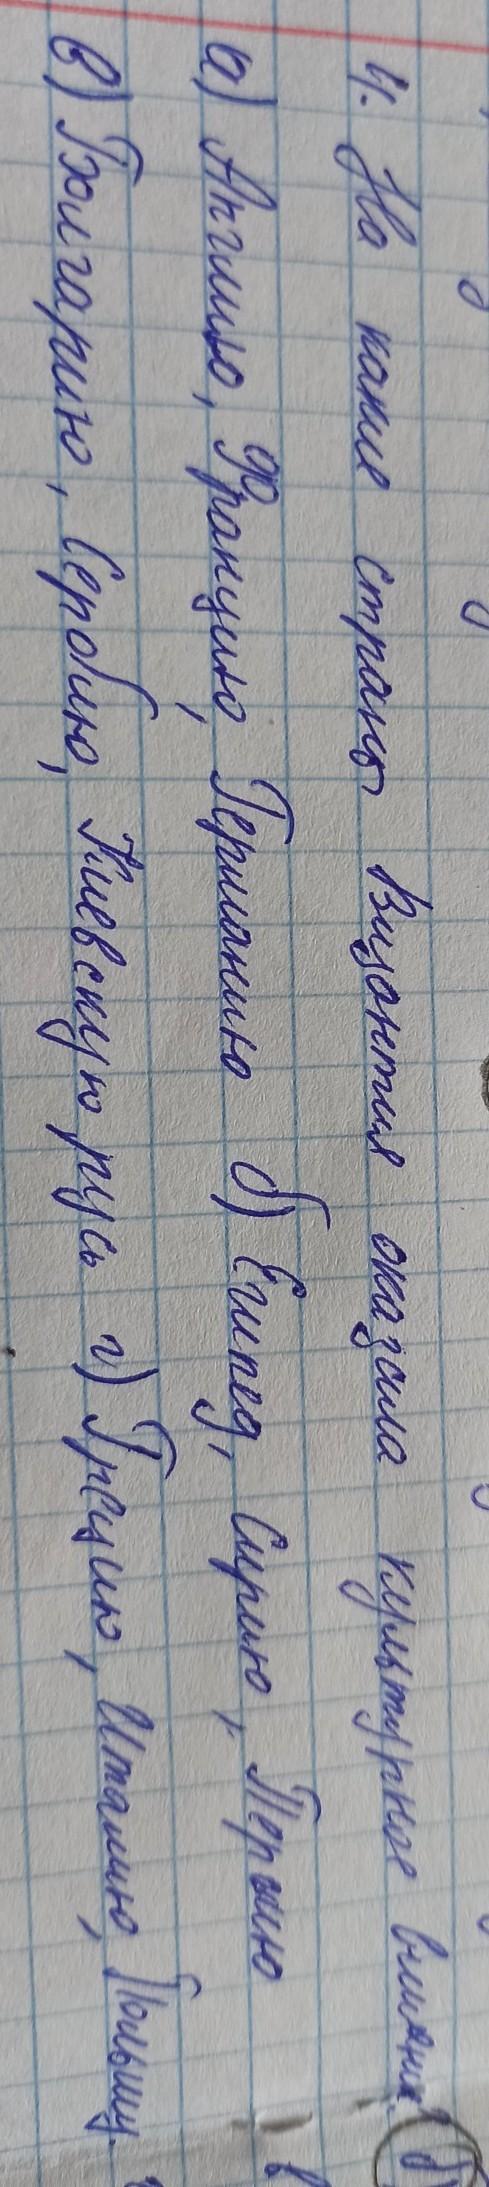 4. На какие страны Византия оказала культурное влияние? б)
а) Англию, Францию, Германию б) Египед, Сирию, Персию
в) Болгарию, Сербию, Киевскую русь г) Грецию, Италию, Польшу.